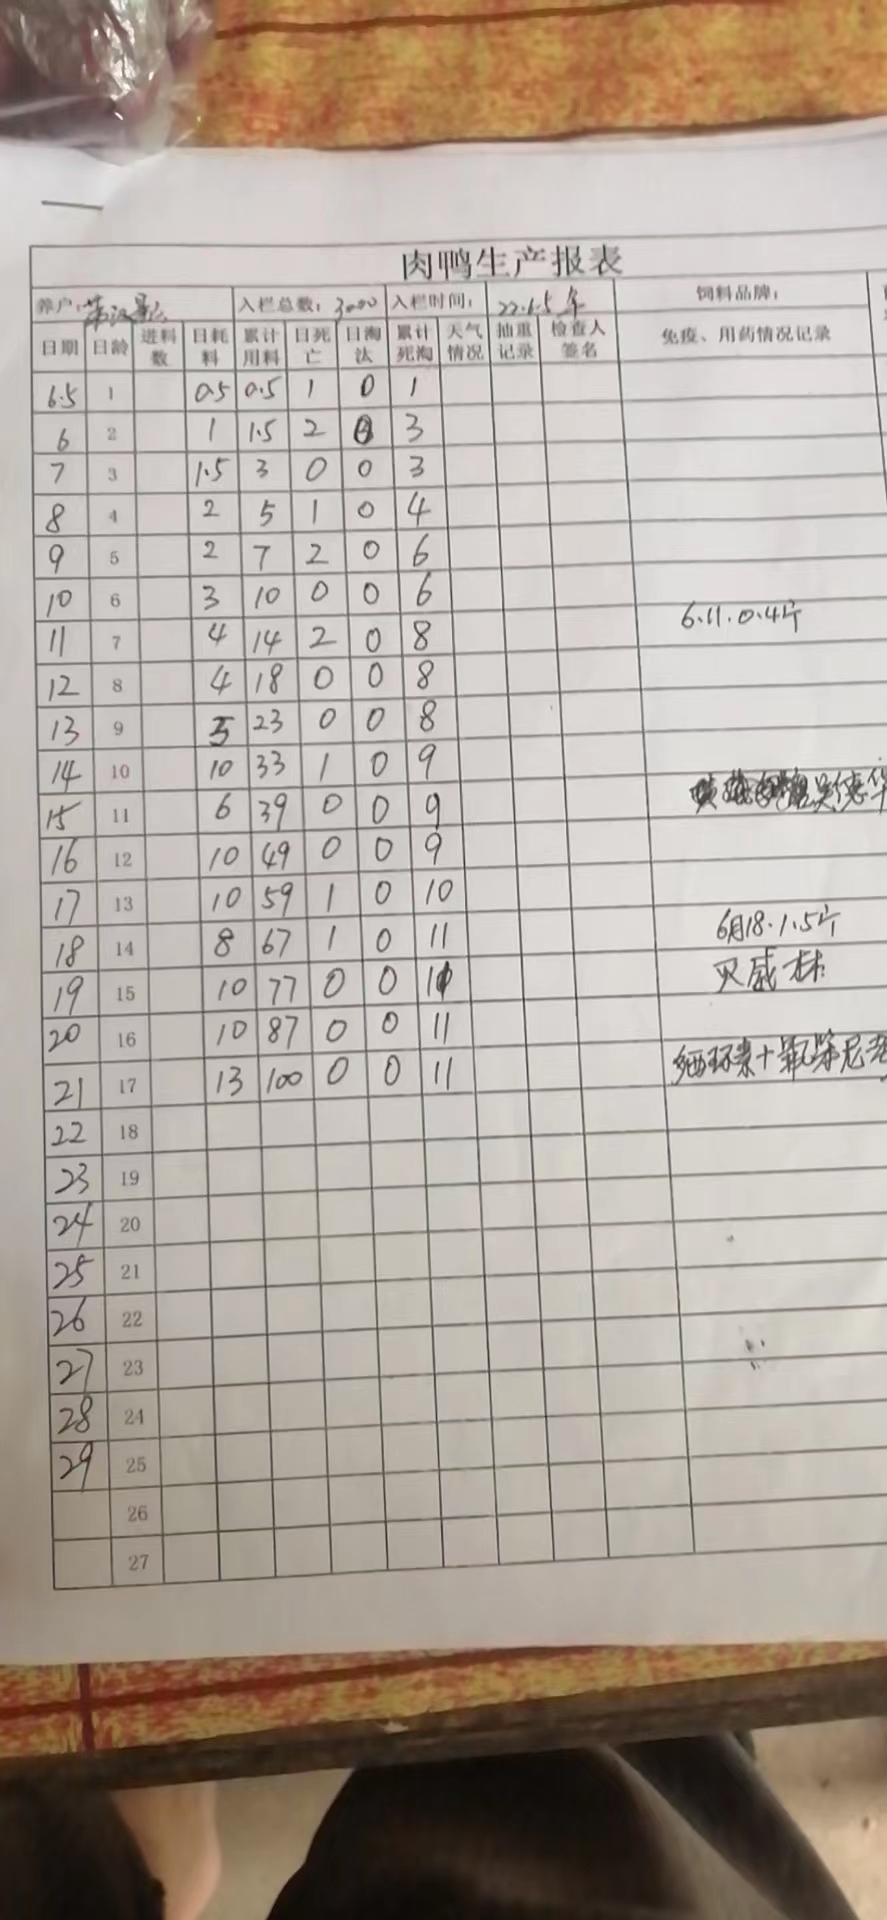 肉鸭生产报表
养户: 入栏总数: 3000 入栏时间: 22.6.5 饲料品牌:
日期 日龄 进料数 日耗料 累计用料 日死亡 日淘汰 累计死淘 天气情况 抽重记录 检查人签名 免疫、用药情况记录
6.5 1 0.5 0.5 1 0 1
6 2 1 1.5 2 0 3
7 3 1.5 3 0 0 3
8 4 2 5 1 0 4
9 5 2 7 2 0 6
10 6 3 10 0 0 6
11 7 4 14 2 0 8 6.11.0.4斤
12 8 4 18 0 0 8
13 9 5 23 0 0 8
14 10 10 33 1 0 9
15 11 6 39 0 0 9
16 12 10 49 0 0 9
17 13 10 59 1 0 10
18 14 8 67 1 0 11 6月18.1.5斤
19 15 10 77 0 0 11
20 16 10 87 0 0 11
21 17 13 100 0 0 11
22 18
23 19
24 20
25 21
26 22
27 23
28 24
29 25
26
27